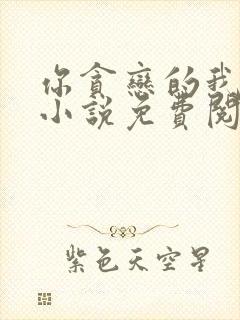 你貪戀的我
小說免費閱
紫色天空星